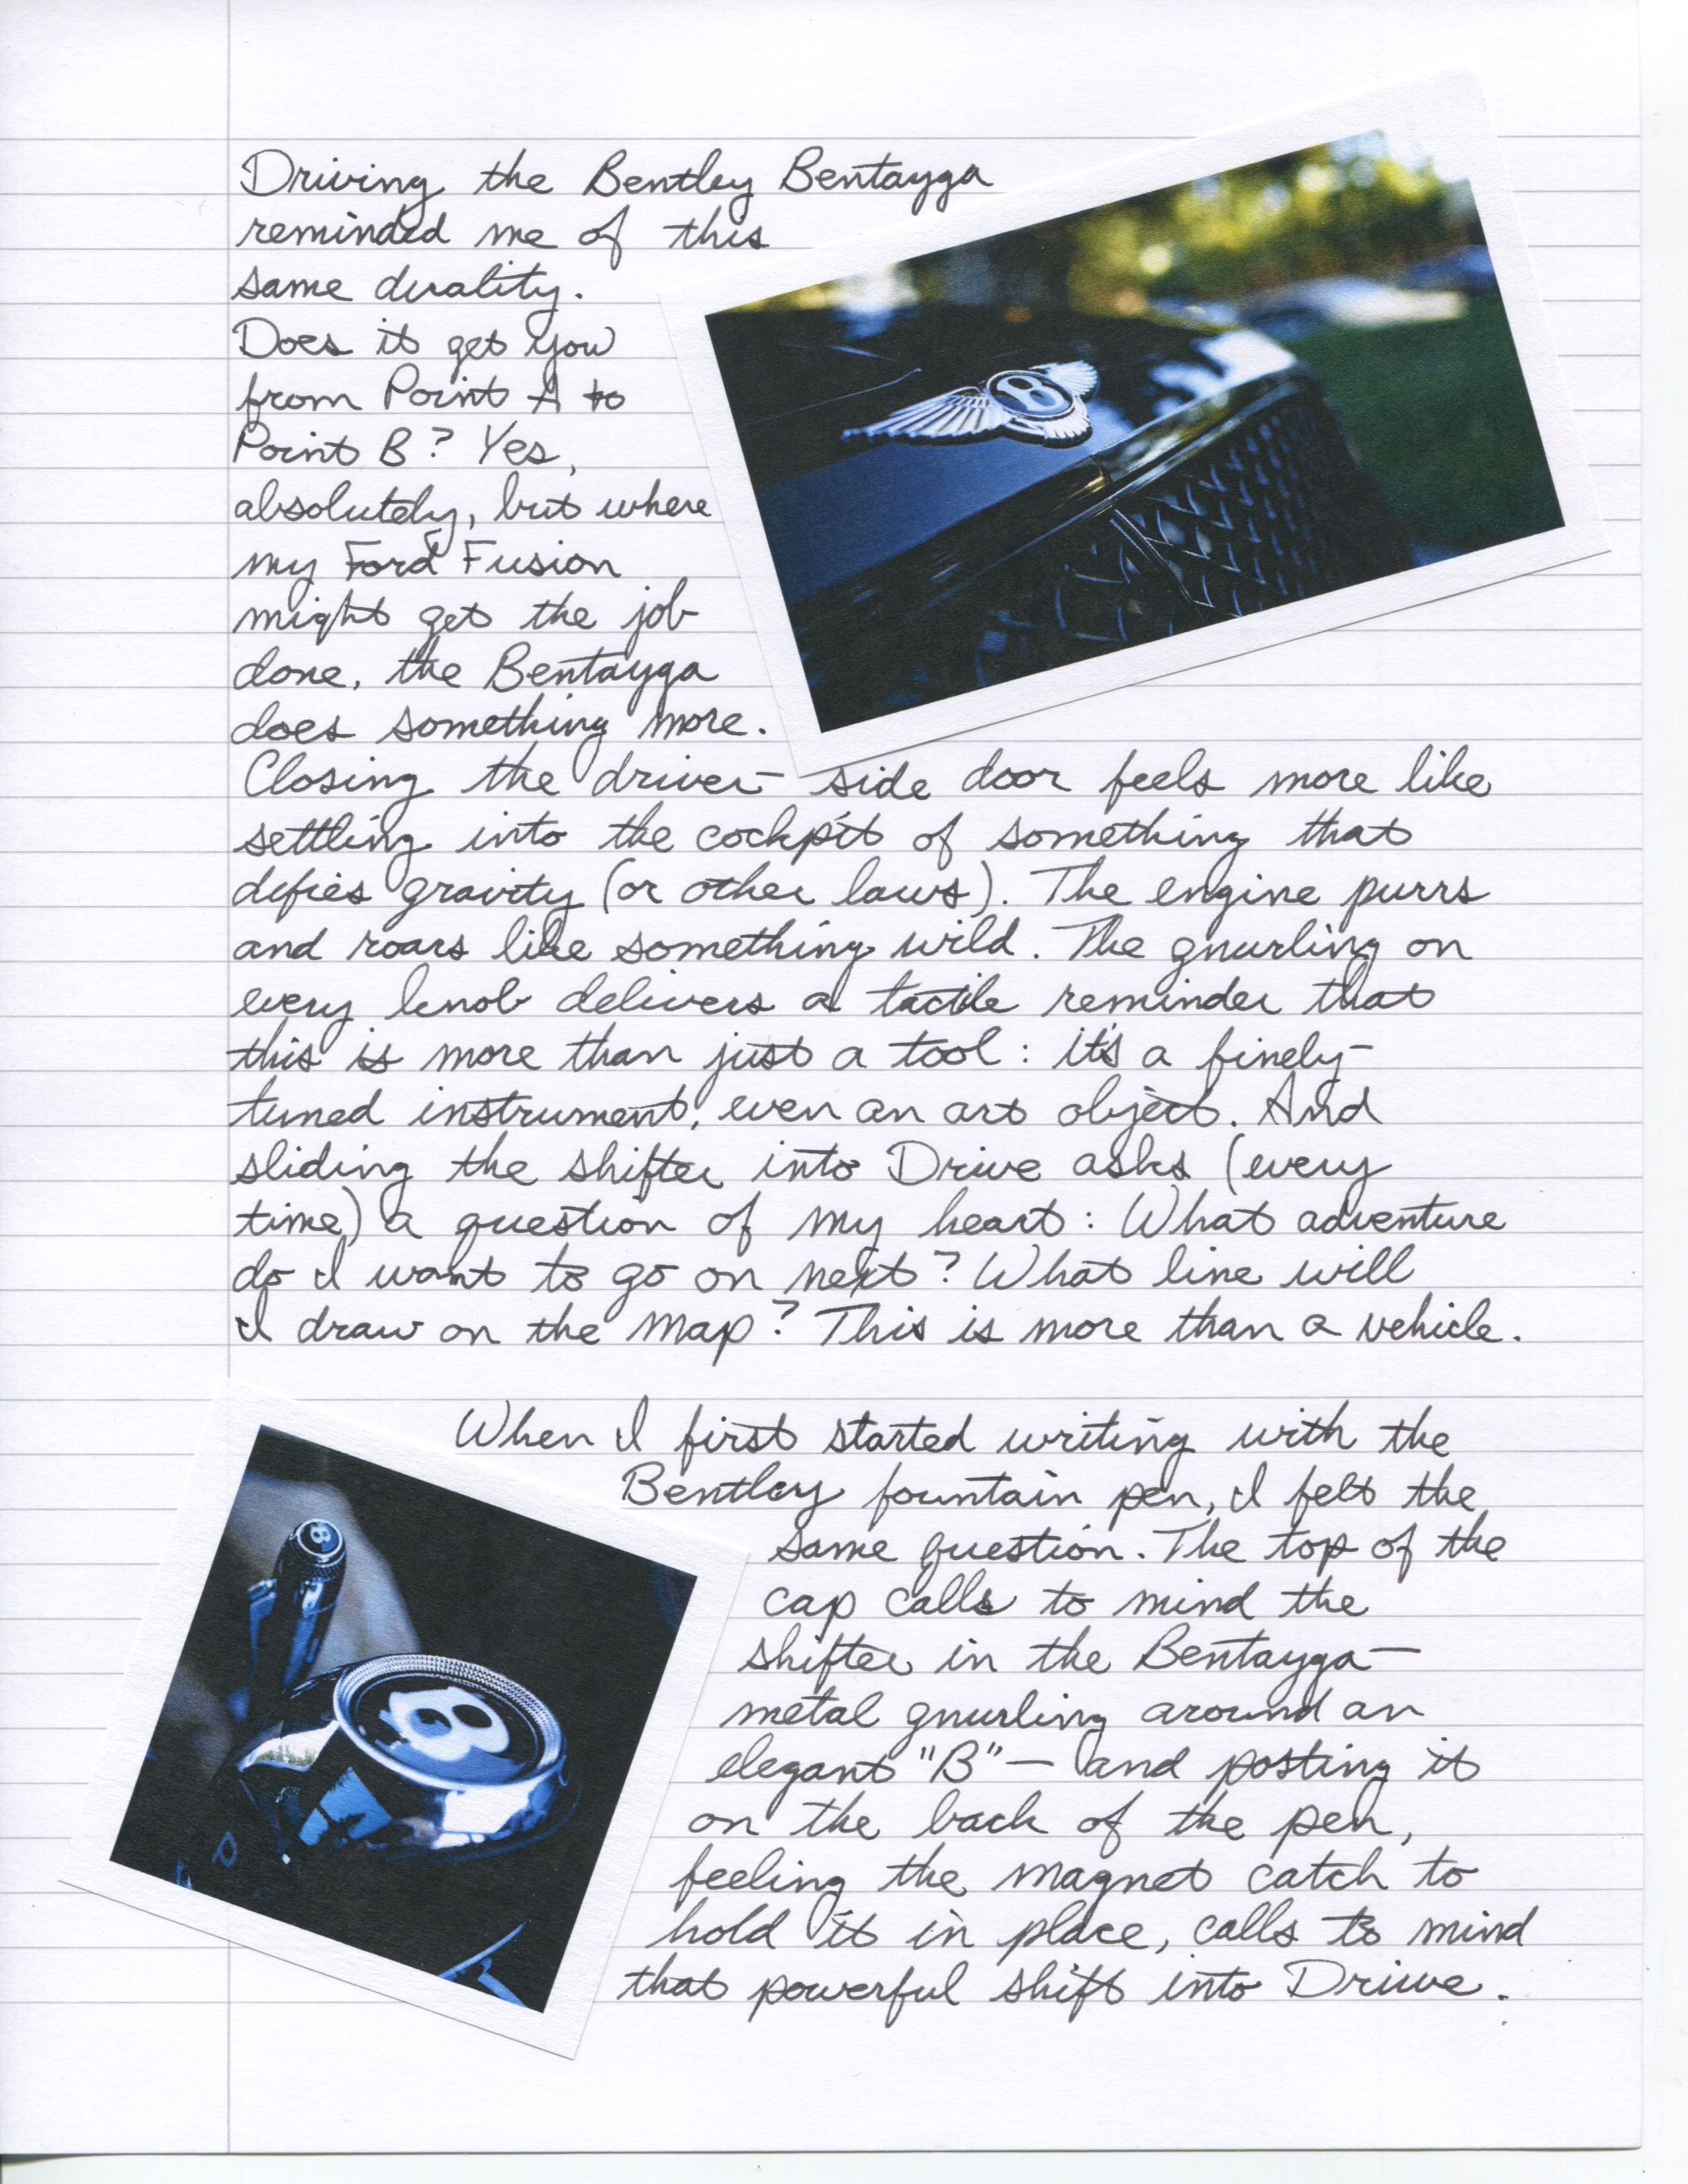 Driving the Bentley Bentayga
reminded me of this
same duality.
Does it get you
from Point A to
Point B? Yes,
absolutely, but where
my Ford Fusion
might get the job
done, the Bentayga
does something more.
Closing the driver-side door feels more like
settling into the cockpit of something that
defies gravity (or other laws). The engine purrs
and roars like something wild. The gnurling on
every knob delivers a tactile reminder that
this is more than just a tool: it's a finely-
tuned instrument, even an art object. And
sliding the shifter into Drive asks (every
time) a question of my heart: What adventure
do I want to go on next? What line will
I draw on the map? This is more than a vehicle.
When I first started writing with the
Bentley fountain pen, I felt the
same question. The top of the
cap calls to mind the
shifter in the Bentayga—
metal gnurling around an
elegant "B"— and posting it
on the back of the pen,
feeling the magnet catch to
hold it in place, calls to mind
that powerful shift into Drive.
B
B
B
P